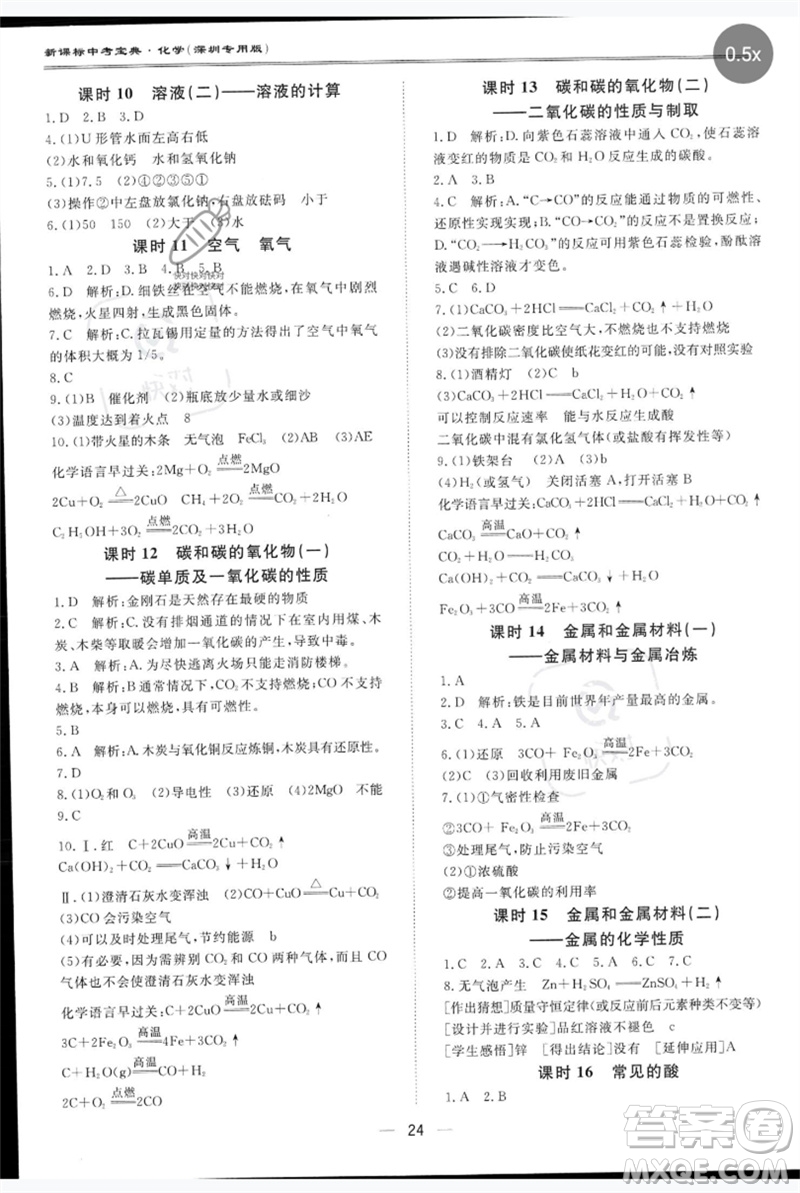 新课标中考宝典·化学(深圳专用版)
0.5x
课时 10 溶液(二)——溶液的计算
1. D 2. B 3. D
4. (1)U 形管水面左高右低
(2)水和氧化钙 水和氢氧化钠
5. (1)7.5 (2)④①③②⑤
(3)操作②中左盘放氯化钠,右盘放砝码 小于
6. (1)50 150 (2)大于 (3)水
课时 11 空气 氧气
1. A 2. D 3. B 4. B 5. B
6. D 解析:D. 细铁丝在空气不能燃烧,在氧气中剧烈
燃烧,火星四射,生成黑色固体。
7. C 解析:C. 拉瓦锡用定量的方法得出了空气中氧气
的体积大概为 1/5。
8. C
9. (1)B 催化剂 (2)瓶底放少量水或细沙
(3)温度达到着火点 8
10. (1)带火星的木条 无气泡 FeCl₃ (2)B (3)AE
化学语言早过关:2Mg+O₂ 点燃 2MgO
2Cu+O₂ △ 2CuO CH₄+2O₂ 点燃 CO₂+2H₂O
C₂H₅OH+3O₂ 点燃 2CO₂+3H₂O
课时 12 碳和碳的氧化物(一)
——碳单质及一氧化碳的性质
1. D 解析:金刚石是天然存在最硬的物质
2. B 解析:没有排烟通道的情况下,在室内用煤、木
炭、木柴等取暖会有一氧化碳的产生,导致中毒。
3. A 解析:A. 为尽快逃离宾馆应走消防楼梯。
4. B 解析:B. 二氧化碳不支持燃烧,一氧化碳可以
燃烧,氧气可支持燃烧,但不能燃烧。
5. B
6. A 解析:A. 木炭与氧化铜反应炼铜,木炭具有还原性。
7. D
8. (1)O₂ (2)导电性 (3)还原性 (4)2MgO
9. C
10. Ⅰ. 红 C+2CuO 高温 2Cu+CO₂↑
Ca(OH)₂+CO₂══CaCO₃↓+H₂O
Ⅱ. (1)澄清石灰水变浑浊 (2)CO+CuO △ Cu+CO₂
(3)CO 会污染空气
(4)可以及时处理尾气,节约能源 d
(5)不需要,因为需辨别 CO 和 CO₂ 两种气体,若变
浑浊说明是 CO₂ 使澄清石灰水变浑浊
化学语言早过关:C+2CuO 高温 2Cu+CO₂↑
3C+2Fe₂O₃ 高温 4Fe+3CO₂↑
C+H₂O(g) 高温 CO+H₂
2C+O₂ 点燃 2CO
课时 13 碳和碳的氧化物(二)
——二氧化碳的性质与制取
1. D 解析:D. 向紫色石蕊溶液中通入 CO₂,使石蕊溶
液变红的物质是 CO₂ 和 H₂O 反应生成的碳酸。
2. A 3. B
4. C 解析:A. “C→CO”的反应能通过物质的可燃性、
还原性实现实现;B. “CO→CO₂”的反应能放出热量;
D. “CO₂→H₂CO₃”的反应可用紫色石蕊检验,酚酞溶
液遇碱性溶液才变色。
5. B 6. C
7. (1)CaCO₃+2HCl══CaCl₂+H₂O+CO₂↑
(2)二氧化碳密度比空气大,不可燃也不可助燃
(3)没有排除二氧化碳使纸花变红的可能,应再做对照实验
8. (1)酒精灯 (2)C b
(3)CaCO₃+2HCl══CaCl₂+H₂O+CO₂↑
可以控制反应速率 能与水反应生成酸
二氧化碳中混有氯化氢气体(或盐酸有挥发性)
9. (1)铁架台 (2)A (3)b
(4)H₂(或氢气) 关闭活塞 A,打开活塞 B
化学语言早过关:CaCO₃+2HCl══CaCl₂+H₂O+CO₂↑
CaCO₃ 高温 CaO+CO₂↑
Ca(OH)₂+CO₂══CaCO₃↓+H₂O
Fe₂O₃+3CO 高温 2Fe+3CO₂
课时 14 金属和金属材料(一)
——金属材料与金属冶炼
1. A
2. D 解析:铁是目前世界年产量最高的金属。
3. C 4. A 5. A
6. (1)还原 3CO+Fe₂O₃ 高温 2Fe+3CO₂
(2)C (3)回收利用废旧金属
7. (1)①气密性检查
②3CO+Fe₂O₃ 高温 2Fe+3CO₂
③处理尾气,防止污染空气
(2)①浓硫酸
②提高一氧化碳的利用率
课时 15 金属和金属材料(二)
——金属的化学性质
1. C 2. A 3. C 4. C 5. C 6. C 7. A
8. 无气泡产生 Zn+H₂SO₄══ZnSO₄+H₂↑
[作出猜想]质量守恒定律(或反应前后元素种类不变等)
[设计并进行实验]品红溶液不褪色 c
[学生感悟]锌 [得出结论]没有 [延伸应用]A
课时 16 常见的酸
1. A 2. B 3. C
24
答案圈
MXQE.COM